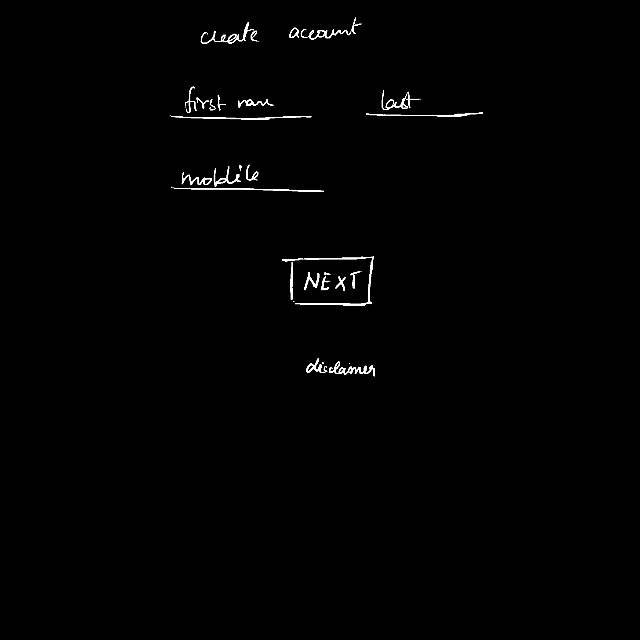 create account
first name last
mobdile
NEXT
disclamer